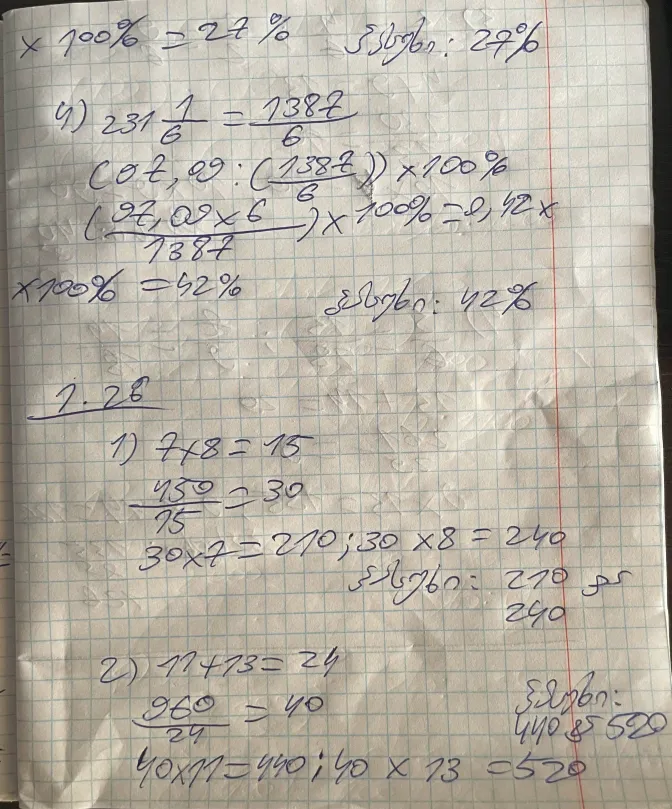 x 100% = 27% პასუხი: 27%
4) 231 1/6 = 1387/6
(97,09 : (1387/6)) x 100%
(97,09 x 6 / 1387) x 100% = 0,42 x
x 100% = 42% პასუხი: 42%
1.28
1) 7x8 = 15
450/15 = 30
30x7 = 210; 30 x8 = 240
პასუხი: 210 და
240
2) 11+13 = 24
960/24 = 40 პასუხი:
440 და 520
40x11 = 440; 40 x 13 = 520